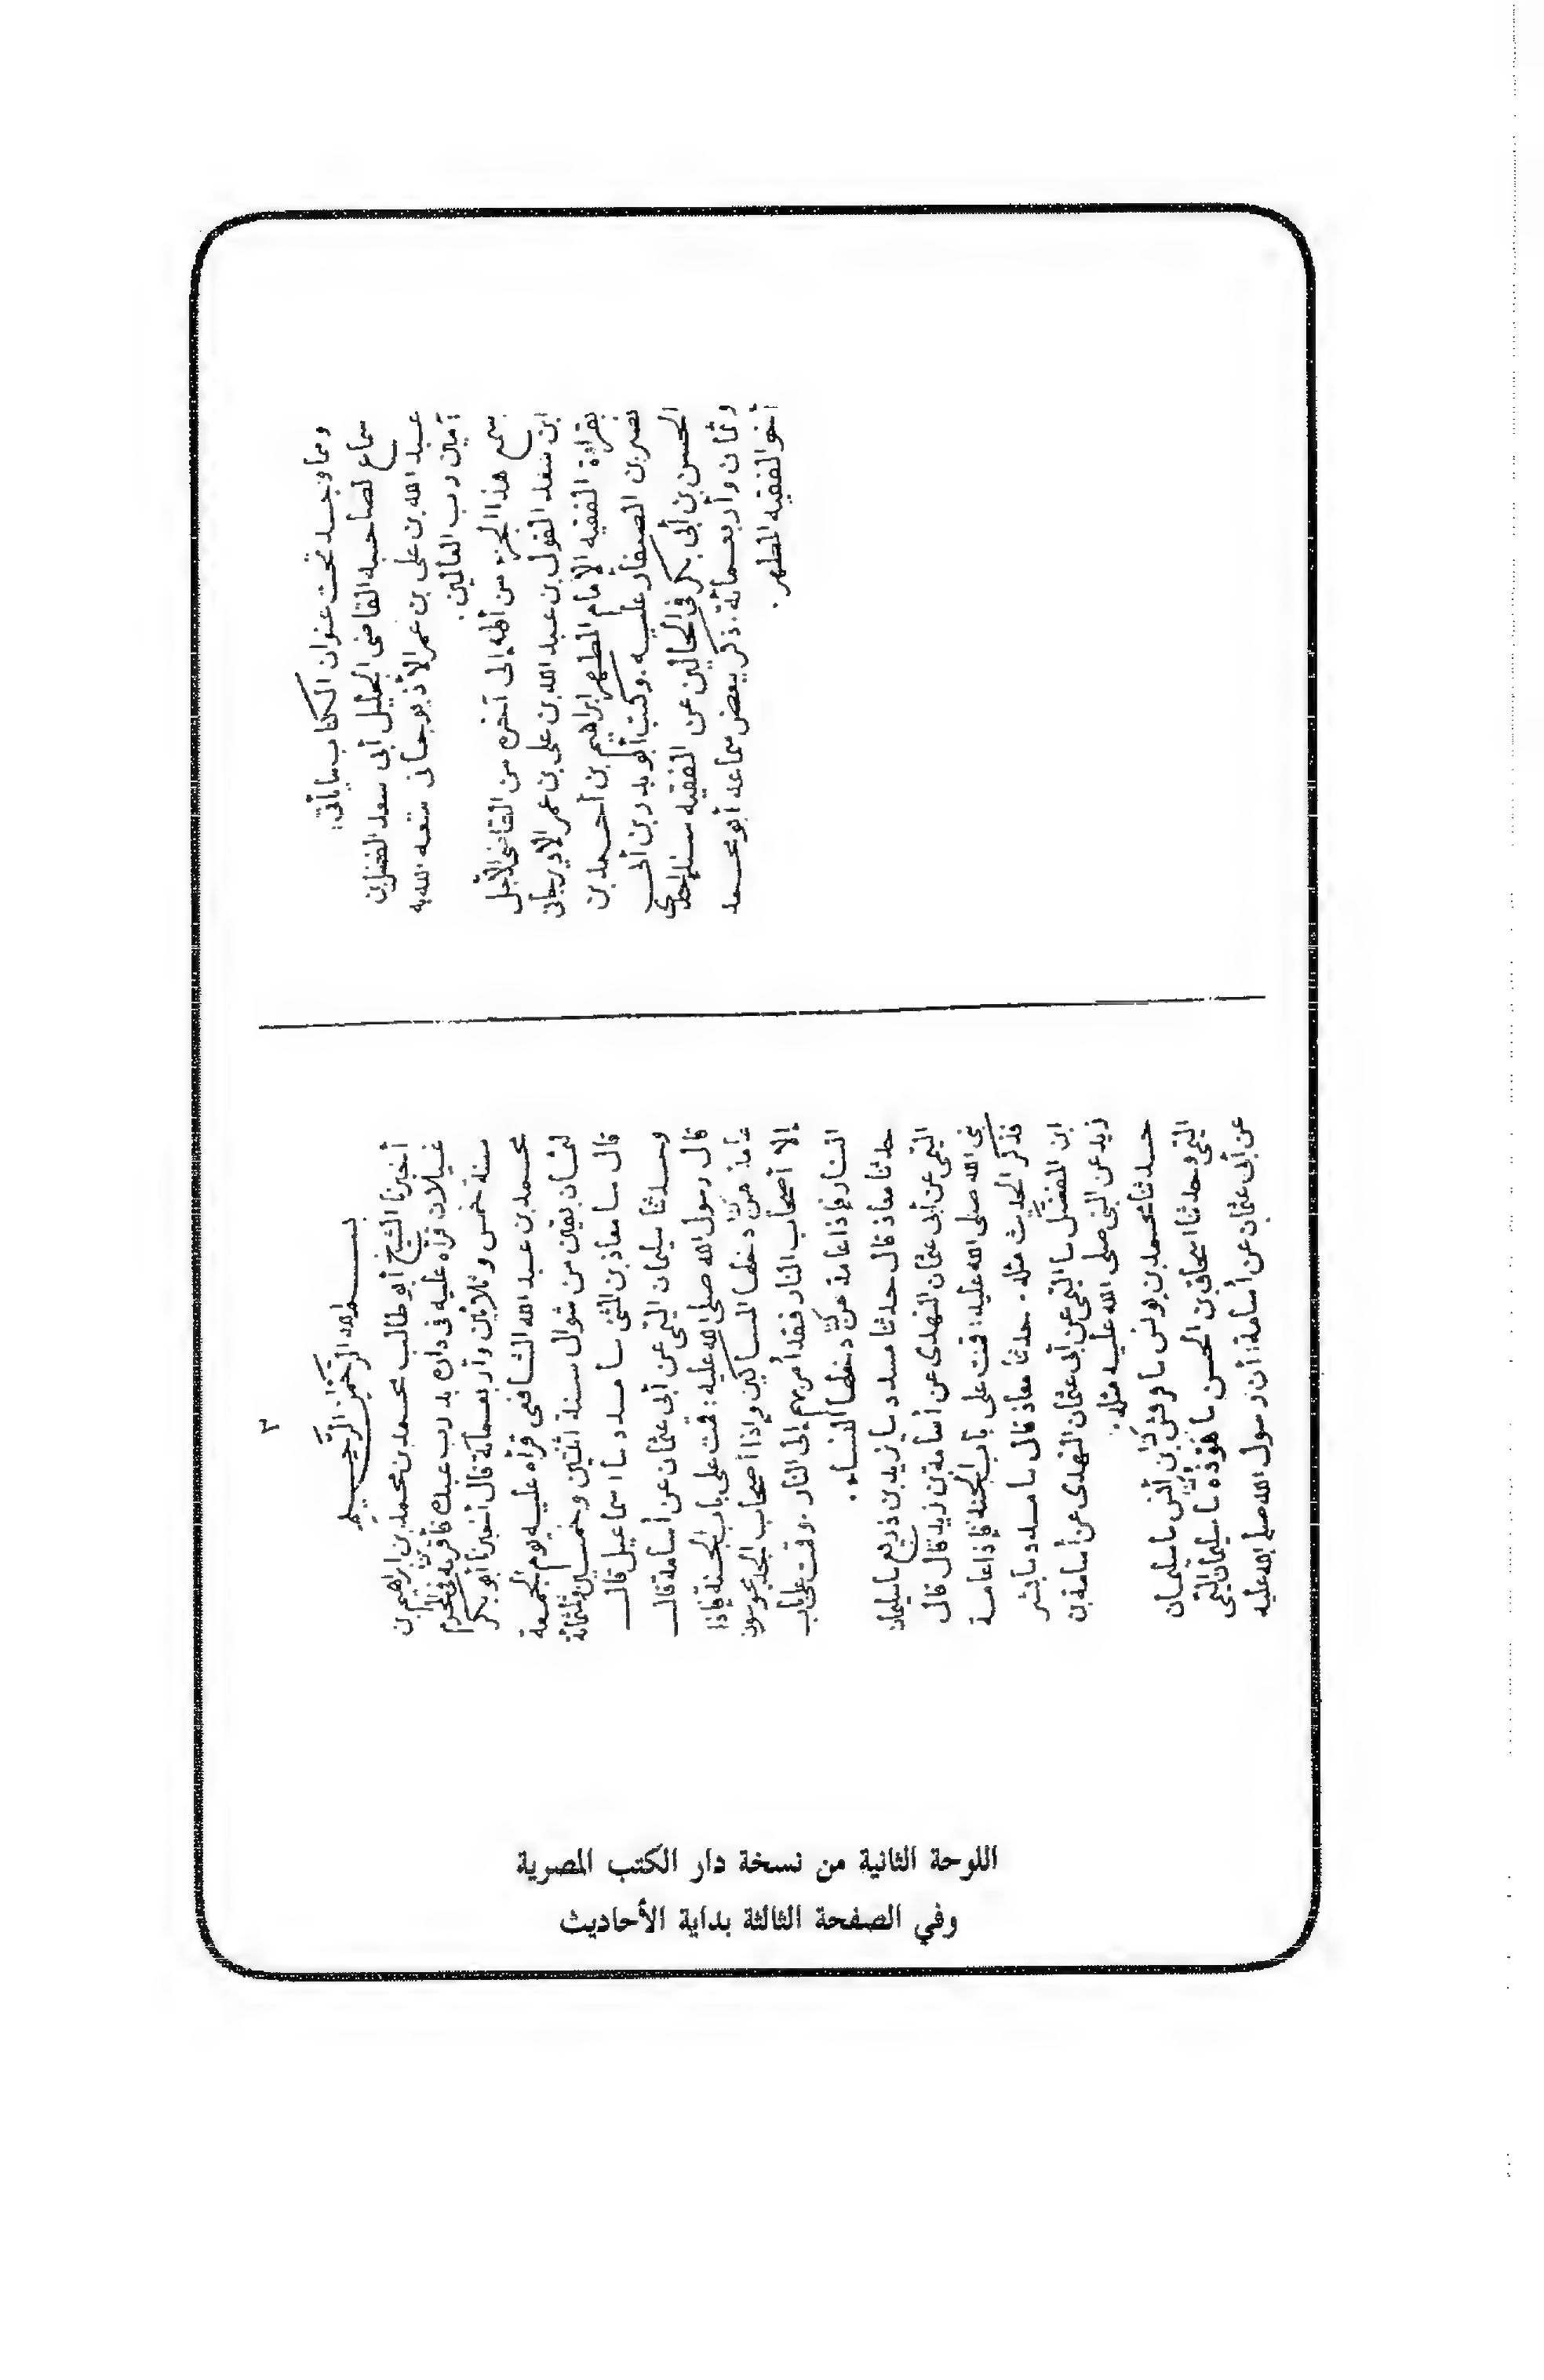 ومما وجد تحت عنوان الكتاب ما يأتى:
سماع لصاحبه القاضى الجليل أبى سعد الفضل بن
عبد الله بن على بن عمر الأذيوجانى متعه الله به
آمين رب العالمين.
سمع هذا الجزء من أوله إلى آخره من القاضى الأجل
ابن سعد القول بن عبد الله بن على بن عمر الاديرجانى
بقراءة الفقيه الإمام المطهر إبراهيم بن أحمد بن
نصر بن الصفار عليه. وكتب أبو بدر بن أبى
الحسن بن أبى بكر فى الحالين عن الفقيه سنة إحدى
وثمان وأربعمائة. ذكر بعض سماعه أبو محمد
أخو الفقيه المطهر.
٣
بسم الله الرحمن الرحيم
أخبرنا الشيخ أبو طالب محمد بن محمد بن إبراهيم بن
غيلان قراءه عليه فى داره بدرب عبدة فأقر به فى محرم
سنة خمس وثلاثين وأربعمائة قال أخبرنا أبو بكر
محمد بن عبد الله الشافعى قراءه عليه يوم الجمعة
لثمان بقين من شوال سنة اثنين وخمسين وثلثمائة
قال سا معاذ بن المثنى سا مسدد سا اسماعيل قال
وحدثنا سليمان التيمى عن أبى عثمان عن أسامة قال
قال رسول الله صلى الله عليه: قمت على باب الجنة فإذا
عامة من دخلها المساكين وإذا أصحاب الجد محبوسون
إلا أصحاب النار فقد أمر بهم إلى النار. وقمت على باب
النار فإذا عامة من دخلها النساء.
حدثنا معاذ قال حدثنا مسدد سا يزيد بن زريع سا سليمان
التيمى عن أبى عثمان النهدى عن أسامة بن زيد قال قال
نبى الله صلى الله عليه: قمت على باب الجنة فإذا عامة
فذكر الحديث مثله. حدثنا معاذ قال سا مسدد سا بشر
ابن المفضل سا التيمى عن أبى عثمان النهدى عن أسامة بن
زيد عن النبى صلى الله عليه مثله.
حدثنا محمد بن يونس سا قريش بن أنس سا سليمان
التيمى وحدثنا اسحاق بن الحسن سا هوذه سا سليمان التيمى
عن أبى عثمان عن أسامة: أن رسول الله صلى الله عليه
اللوحة الثانية من نسخة دار الكتب المصرية
وفي الصفحة الثالثة بداية الأحاديث